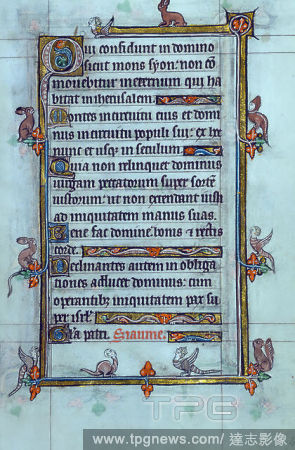 Qui confidunt in domino
sicut mons syon: non cō
movebitur ineternum qui ha
bitat inihrusalem.
Montes incircuitu eius et domi
nus incircuitu populi sui: ex hc
nunc et usq; in seculum.
Quia non relinquet dominus
uirgam peccatorum super sortē
iustorum: ut non extendant iusti
ad iniquitatem manus suas.
Bene fac domine bonis et rectis
corde.
Declinantes autem in obliga
tiones adducet dominus: cum
operantibȝ iniquitatem pax su
per isrł
Gła patri.
TPG
www.tpgnews.com / 達志影像